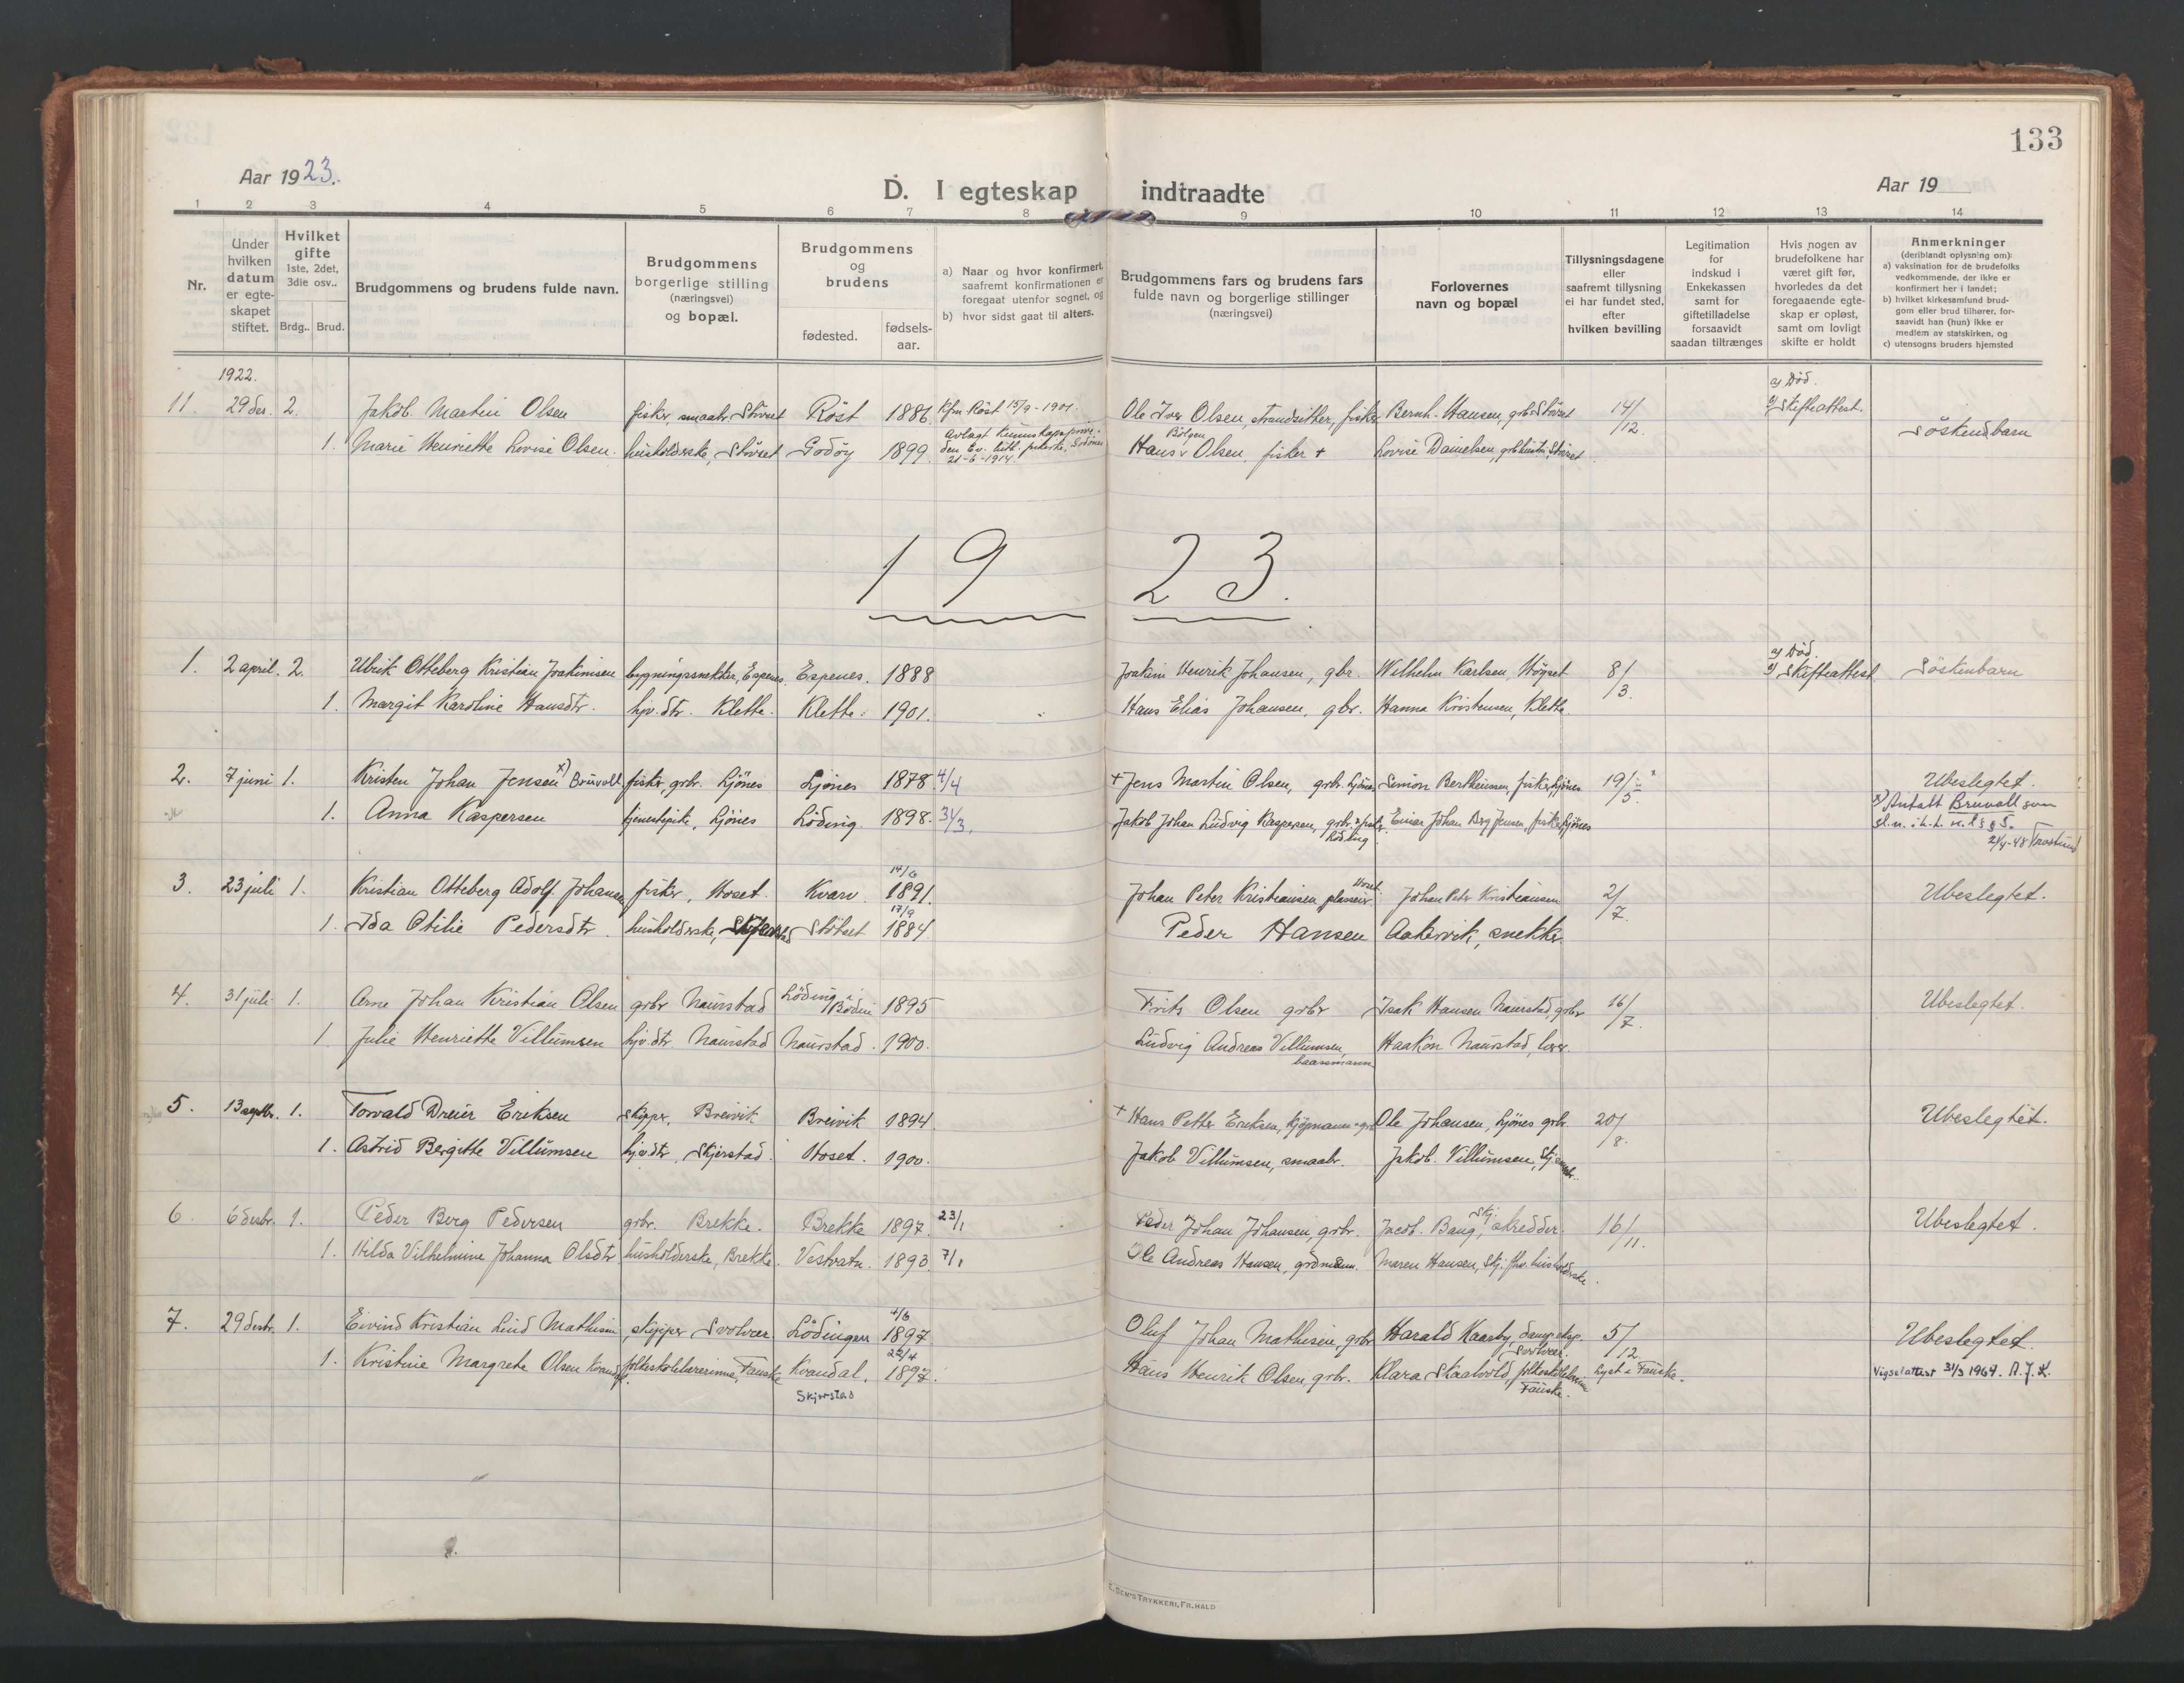 133
Aar 1923.
D. I egteskap indtraadte
Aar 19
1 2 3 4 5 6 7 8 9 10 11 12 13 14
Nr.
Under
hvilken
datum
er egte-
skapet
stiftet.
Hvilket
gifte
1ste, 2det,
3die osv..
Brdg.. Brud.
Brudgommens og brudens fulde navn.
Brudgommens
borgerlige stilling
(næringsvei)
og bopæl.
Brudgommens
og
brudens
fødested.
fødsels-
aar.
a) Naar og hvor konfirmert,
saafremt konfirmationen er
foregaat utenfor sognet, og
b) hvor sidst gaat til alters.
Brudgommens fars og brudens fars
fulde navn og borgerlige stillinger
(næringsvei)
Forlovernes
navn og bopæl
Tillysningsdagene
eller
saafremt tillysning
ei har fundet sted,
efter
hvilken bevilling
Legitimation
for
indskud i
Enkekassen
samt for
giftetilladelse
forsaavidt
saadan tiltrænges
Hvis nogen av
brudefolkene har
været gift før,
hvorledes da det
foregaaende egte-
skap er opløst,
samt om lovligt
skifte er holdt
Anmerkninger
(deriblandt oplysning om):
a) vaksination for de brudefolks
vedkommende, der ikke er
konfirmert her i landet;
b) hvilket kirkesamfund brud-
gom eller brud tilhører, for-
saavidt han (hun) ikke er
medlem av statskirken, og
c) utensogns bruders hjemsted
1922.
11. 29 des. 2. Jakob Martin Olsen fisker, smaabr. Störset Röst 1886 Kfm Röst 15/9-1901. Ole Iver Olsen, strandsitter, fisker Bernh. Hansen, grb. Störset 14/12. a) Död. b) Skifteattest.
1. Marie Henriette Lovise Olsen. husholderske, Störset Godöy 1899. Avlagt Kunnskapspröve i den Ev. luth. frikirke, 21-6-1914. Hans Bölgen Olsen, fisker + Lovise Danielsen, Störset. Söskendbarn
1923.
1. 2 april. 2. Ulrik Otteberg Kristian Joakimsen bygningssnekker, Espenes. Espenes. 1888 Joakim Henrik Johansen, gbr. Wilhelm Karlsen, Högset 8/3. a) Död. b) Skifteattest Söskenbarn
1. Margit Karoline Hansdtr. hjv. dtr. Klette. Klette. 1901. Hans Elias Johansen, gbr. Hanna Kristensen, Klette.
2. 7 juni 1. Kristen Johan Jensen x) Bruvoll fisker, grbr. Ljönes Ljönes 1878. 4/4 + Jens Martin Olsen, grbr. Ljönes Simon Bertheussen, fisker, Ljönes 19/5. Ubeslegtet.
1. Anna Kaspersen tjenestepike, Ljönes Löding. 1898. 31/3. Jakob Johan Ludvig Kaspersen, grbr. fisker Löding Einar Johan Berg Jensen, fisker, Ljönes x) Antatt Bruvoll som sl.n. i h.t. n.l § 5.
3. 23 juli 1. Kristian Otteberg Adolf Johansen fisker, Hoset. Kvarv. 14/6 1891. Johan Peter Kristiansen, Hoset. Johan Peter Kristiansen 2/7. Ubeslegtet.
1. Ida Otilie Pedersdtr. husholderske, Störset 17/9 1884. Peder Hansen Aakervik, snekker
4. 31 juli 1. Arne Johan Kristian Olsen grbr Naurstad Löding i Bodin 1895 Frits Olsen grbr Isak Hansen Naurstad, grbr 16/7. Ubeslegtet.
1. Julie Henriette Villumsen hjv. dtr. Naurstad Naurstad. 1900. Ludvig Andreas Villumsen, baassmann Haakon Naurstad, lærer.
5. 13 septbr. 1. Torvald Dreier Eriksen skipper, Breivik Breivik 1894. + Hans Petter Eriksen, kjöpmann Ole Johansen, Ljönes grbr. 20/8. Ubeslegtet.
1. Astrid Bergitte Villumsen hjv dtr, Skjerstad. Hoset. 1900. Jakob Villumsen, smaabr. Jakob Villumsen,
6. 6 desbr. 1. Peder Berg Pedersen grbr. Brekke. Brekke 1897. 23/1 Peder Johan Johansen, grbr. Jacob Bang, Skj. skredder. 16/11. Ubeslegtet.
1. Hilda Vilhelmine Johanna Olsdtr husholderske, Brekke. Vestvatn. 1893. 7/1 Ole Andreas Hansen, grdmann. Maren Hansen, Skj. husholderske.
7. 29 desbr. 1. Eivind Kristian Lind Mathisen, skipper Svolvær Lödingen 4/6 1897. Oluf Johan Mathisen, grbr Harald Kaarby, damp.eksp. Svolvær. 5/12. Ubeslegtet.
1. Kristine Margrete Olsen Kvandal. folkeskolelærerinne, Fauske Kvandal, Skjerstad 22/4 1897. Hans Henrik Olsen, grbr. Klara Skaalvold, folkeskolelærerinne Fauske. Lyst i Fauske. Vigselattest 31/3 1964. A.J.K.
E. SEM'S TRYKKERI, FR.HALD